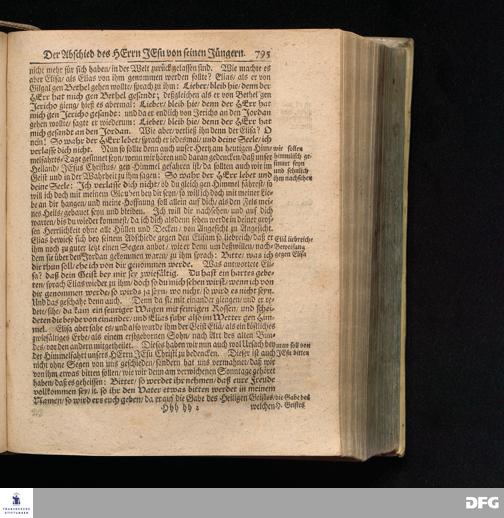 Der Abschied des HErrn JEsu von seinen Jüngern. 795
nicht mehr für sich haben/ in der Welt zurückgelassen sind. Wie machte es
aber Elisa/ als Elias von ihm genommen werden sollte? Elias/ als er von
Gilgal gen Bethel gehen wollte/ sprach zu ihm: Lieber/ bleib hie/ denn der
HErr hat mich gen Bethel gesandt; deßgleichen als er von Bethel gen
Jericho gieng/ hieß es abermal: Lieber/ bleib hie/ denn der HErr hat
mich gen Jericho gesandt: und da er endlich von Jericho an den Jordan
gehen wollte/ sagte er wiederum: Lieber/ bleib hie/ denn der HErr hat
mich gesandt an den Jordan. Wie aber/ verließ ihn denn der Elisa? O
nein! So wahr der HErr lebet/ sprach er jedesmal/ und deine Seele/ ich
verlasse dich nicht. Nun so sollte denn auch unser Hertz am heutigen Him-
melfahrts-Tage gesinnet seyn/ wenn wir hören und daran gedencken/ daß unser
Heiland/ JEsus Christus/ gen Himmel gefahren ist/ da sollten auch wir im
Geist und in der Wahrheit zu ihm sagen: So wahr der HErr lebet und
deine Seele: Ich verlasse dich nicht; ob du gleich gen Himmel fährest/ so
will ich doch mit meinem Glauben bey dir seyn/ so will ich doch mit meiner Lie-
be an dir hangen/ und meine Hoffnung soll allein auf dich/ als den Fels mei-
nes Heils/ gebauet seyn und bleiben. Ich will dir nachsehen/ und auf dich
warten/ bis du wieder kommest/ da ich dich alsdenn sehen werde in deiner gros-
sen Herrlichkeit ohne alle Hüllen und Decken/ von Angesicht zu Angesicht.
Elias bewiese sich bey seinem Abschiede gegen den Elisam so liebreich/ daß er
ihm noch zu guter letzt einen Segen anbot/ wie er denn um deßwillen/ nach-
dem sie über den Jordan gekommen waren/ zu ihm sprach: Bitte/ was ich
dir thun soll/ ehe ich von dir genommen werde. Was antwortete Eli-
sa? daß dein Geist bey mir sey zwiefältig. Du hast ein hartes gebe-
ten/ sprach Elias wieder zu ihm/ doch so du mich sehen wirst/ wenn ich von
dir genommen werde/ so wirds ja seyn/ wo nicht/ so wird es nicht seyn.
Und das geschahe denn auch. Denn da sie mit einander giengen/ und er re-
dete/ sihe/ da kam ein feuriger Wagen mit feurigen Rossen/ und schei-
deten die beyde von einander/ und Elias fuhr also im Wetter gen Him-
mel. Elisa aber sahe es/ und also wurde ihm der Geist Eliä/ als ein köstliches
zwiefältiges Erbe/ als einem erstgebornen Sohn/ nach Art des alten Bun-
des/ vor den andern mitgetheilet. Dieses haben wir nun auch wol Ursach bey
der Himmelfahrt unsers HErrn JEsu Christi zu bedencken. Dieser ist auch
nicht ohne Segen von uns geschieden/ sondern hat uns vermahnet/ daß wir
von ihm etwas bitten sollen/ wie wir denn am verwichenen Sonntage gehöret
haben/ daß es geheissen: Bittet/ so werdet ihr nehmen/ daß eure Freude
vollkommen sey/ it. so ihr den Vater etwas bitten werdet in meinem
Namen/ so wird ers euch geben/ da er auf die Gabe des Heiligen Geistes/
Hhh hh 2
welchen
wir sollen
himmlisch ge-
sinnet seyn
und sehnlich
ihm nachsehen
Eliä liebreiche
Bezeigung
gegen Elisa
uns soll von
JEsu bitten
die Gabe des
H. Geistes
FRANCKESCHE
STIFTUNGEN
DFG